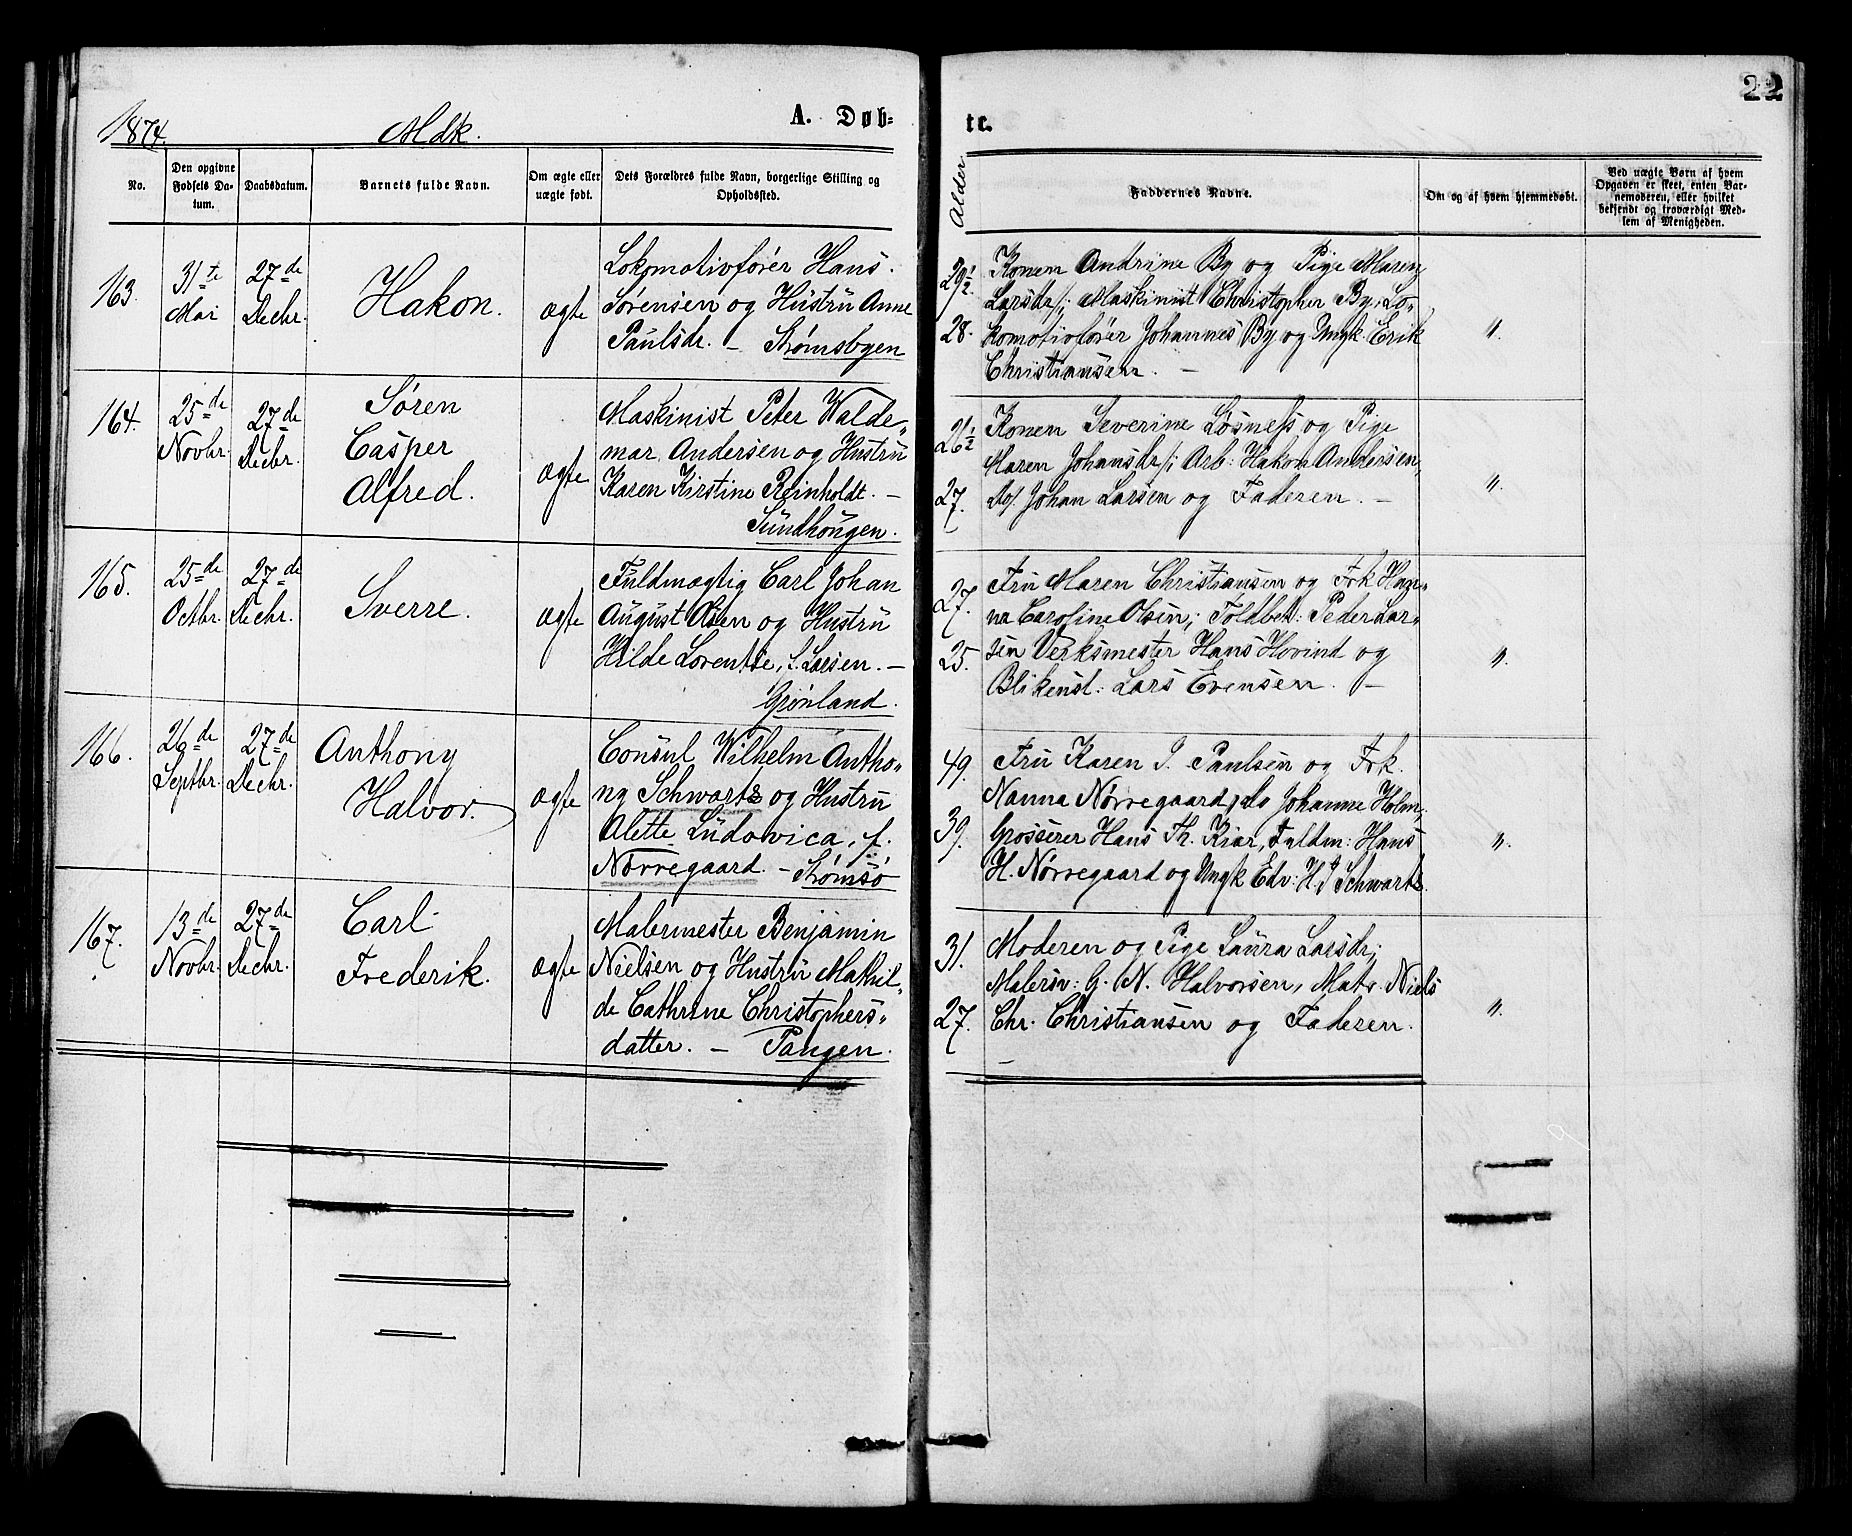 22
1874. Mdk. A. Døb-
te.
No.
Den opgivne
Fødsels Da-
tum.
Daabsdatum.
Barnets fulde Navn.
Om ægte eller
uægte født.
Dets Forældres fulde Navn, borgerlige Stilling og
Opholdssted.
Alder.
Faddernes Navne.
Om og af hvem hjemmedøbt.
Ved uægte Børn af hvem
Opgaven er skeet, enten Bar-
nemoderen, eller hvilket
bekjendt og troværdigt Med-
lem af Menigheden.
163.
31te
Mai
27de
Decbr.
Hakon.
ægte
Lokomotivfører Hans
Sørensen og Hustru Anne
Paulsdr. – Strømsbyen
29½
28.
Konen Andrine By og Pige Maren
Larsdr/; Maskinist Christopher By, Lo-
komotivfører Johannes By og Ungk. Erik
Christiansen. –
"
164.
25de
Novbr.
27de
Decbr.
Søren
Casper
Alfred.
ægte
Maskinist Peter Walde-
mar Andersen og Hustru
Karen Kirstine Reinholdt. –
Sundhougen.
26½
27.
Konen Severine Løsness og Pige
Maren Johansdr/; Arb: Hakon Andersen,
do/. Johan Larsen og Faderen. –
"
165.
25de
Octbr.
27de
Decbr.
Sverre.
ægte
Fuldmægtig Carl Johan
August Olsen og Hustru
Hilde Lorentse, f. Larsen. –
Grønland.
27.
25.
Fru Maren Christiansen og Frk Han-
na Caroline Olsen; Toldbet: Peder Lar-
sen Verksmester Hans Hovind og
Blikenst: Lars Evensen. –
"
166.
26de
Septbr.
27de
Decbr.
Anthony
Halvor.
ægte
Consul Wilhelm Antho-
ny Schwartz og Hustru
Alette Ludovica, f.
Nørregaard. – Strømsø
49.
39.
Fru Karen J. Paulsen og Frk.
Nanna Nørregaard, do Johanne Holm,
Grosserer Hans Th. Kiær, Fuldm: Hans
H. Nørregaard og Ungk Edv: H. J Schwartz.
"
167.
13de
Novbr.
27de
Decbr.
Carl
Frederik.
ægte
Malermester Benjamin
Nielsen og Hustru Mathil-
de Cathrine Christophers-
datter. – Tangen.
31.
27.
Moderen og Pige Laura Larsdr;
Malersv: G. N. Halvorsen, Matr. Niels
Chr. Christiansen og Faderen.
–
"